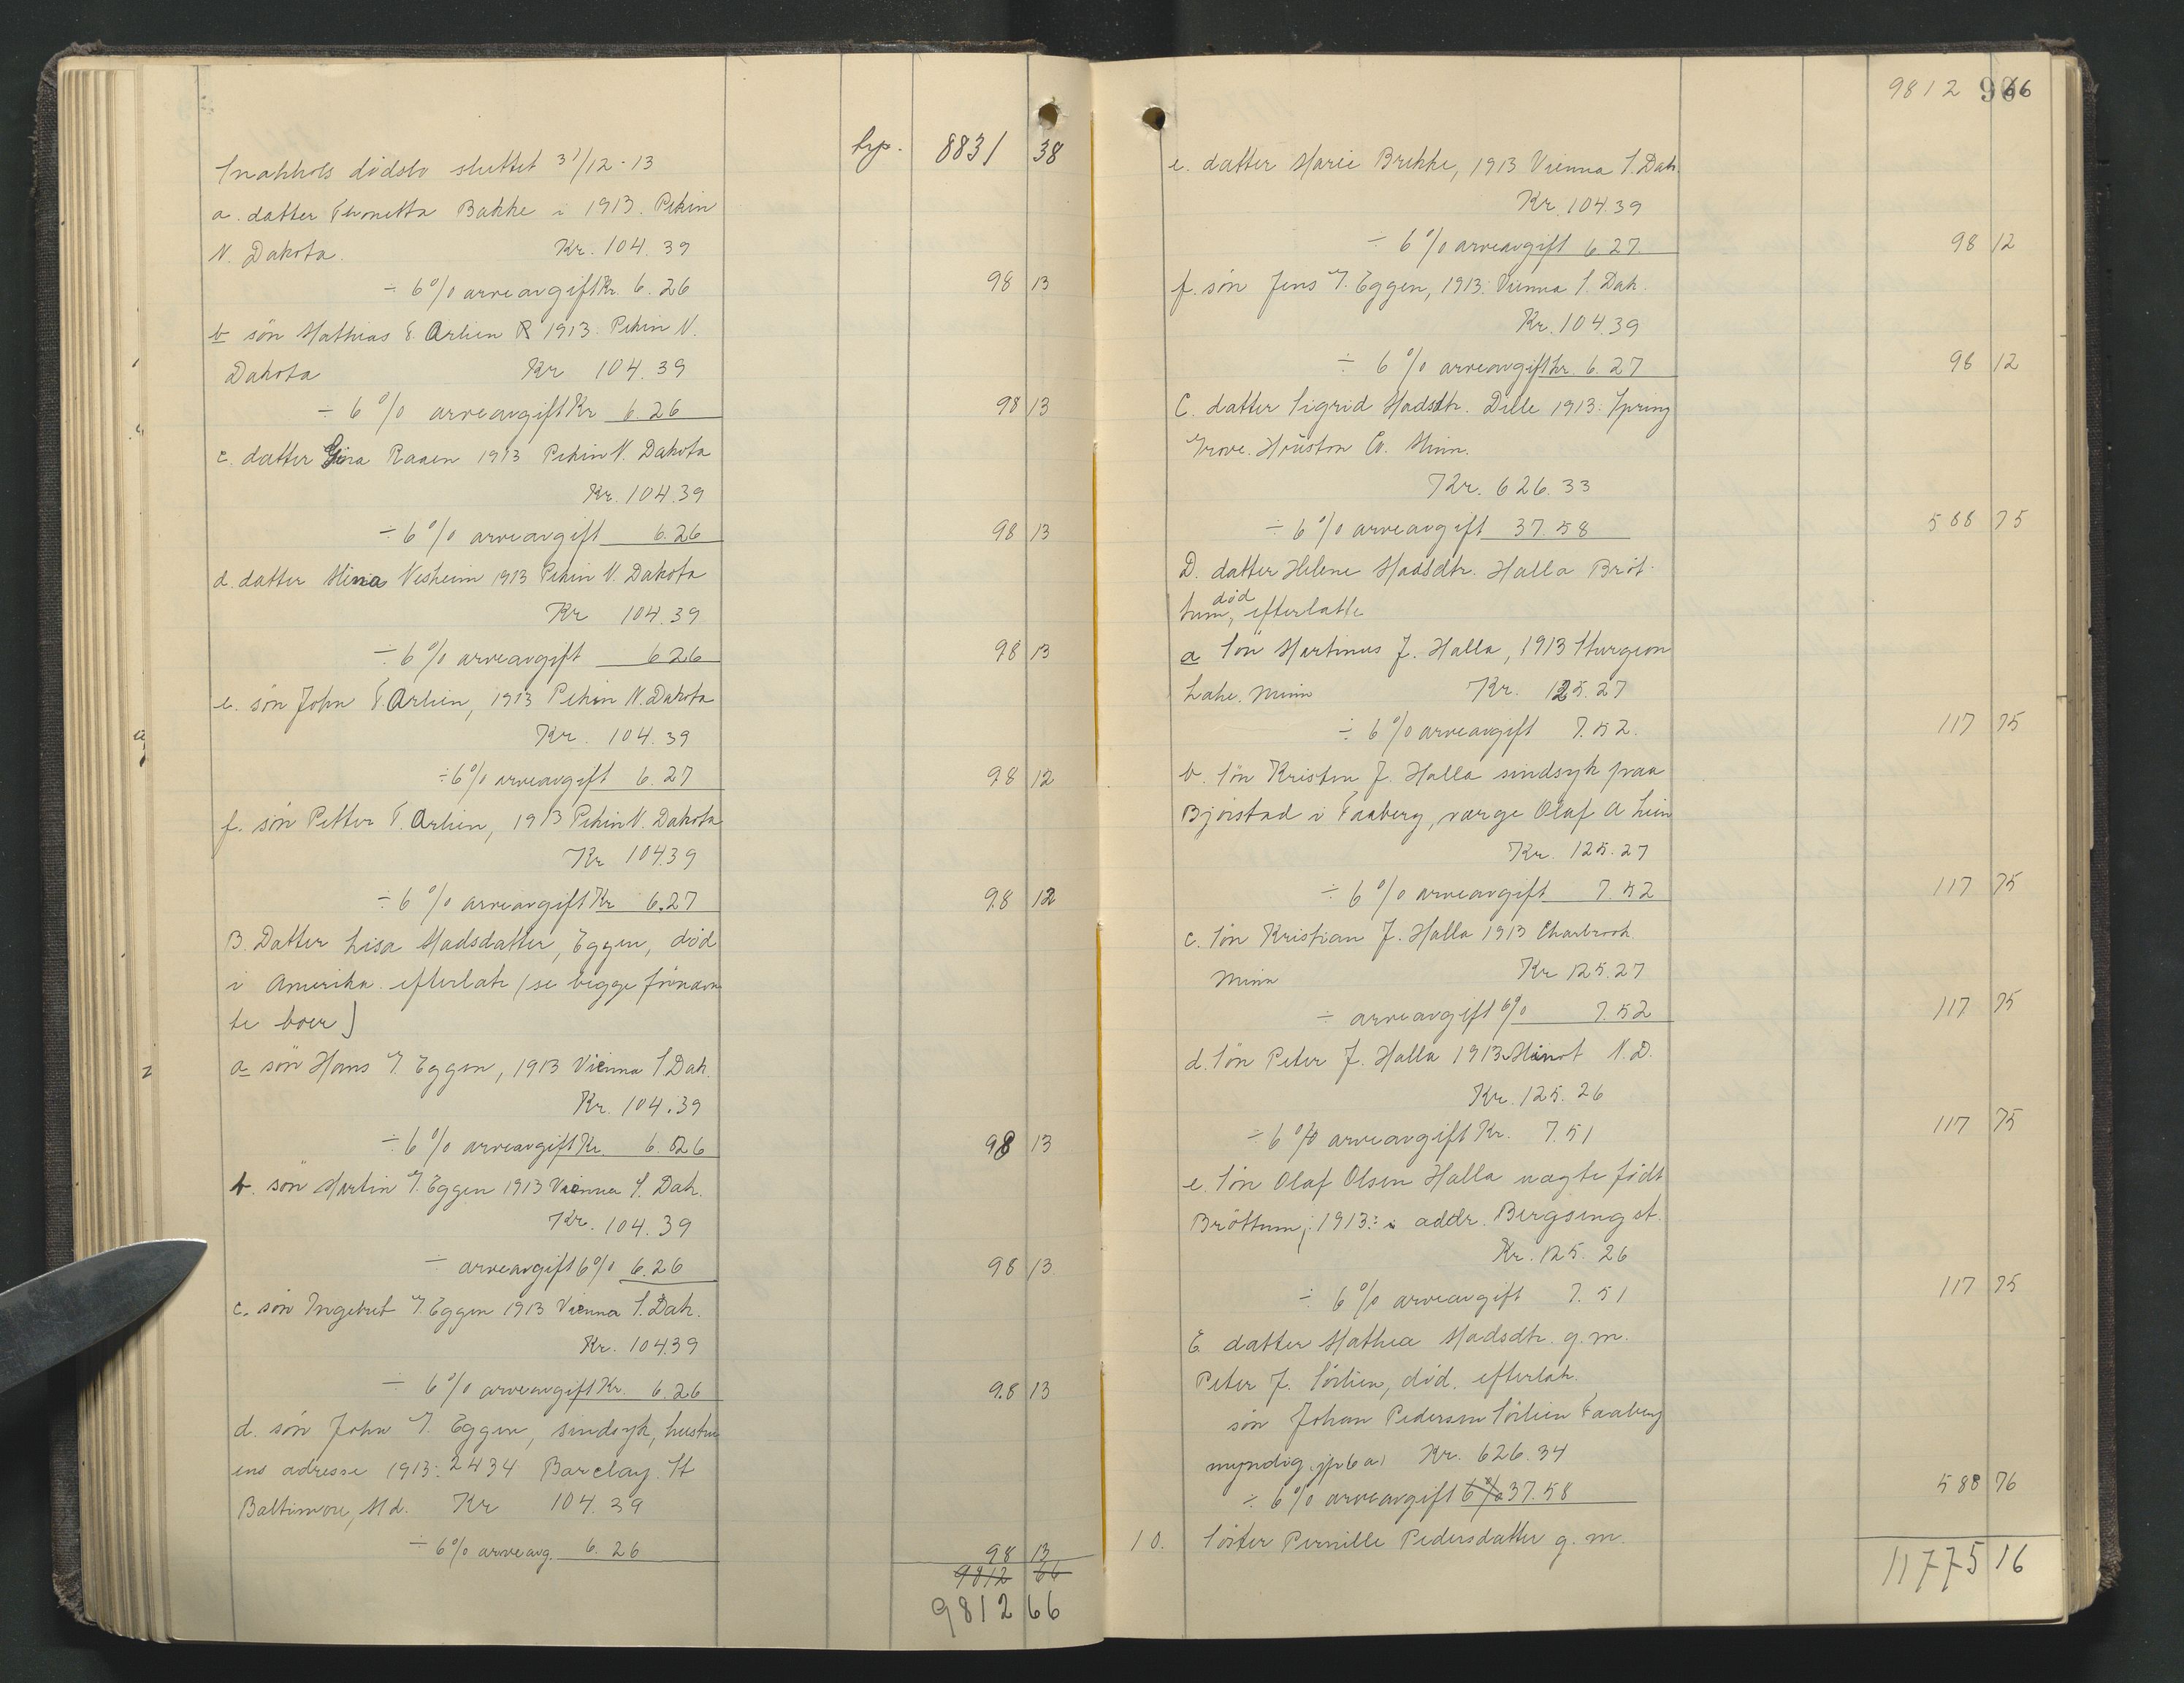 trp. 8831 38
Snahhols dødsbo sluttet 31/12-13
a. datter Thonetta Bakke i 1913. Pekin
N. Dakota. Kr. 104.39
÷ 6% arveavgift Kr. 6.26 98 13
b søn Mathias T. Arlien R 1913. Pekin N.
Dakota Kr 104.39
÷ 6% arveavgift Kr 6.26 98 13
c. datter Gina Raaen 1913 Pekin N. Dakota
Kr. 104.39
÷ 6% arveavgift 6.26 98 13
d. datter Mina Vesheim 1913 Pekin N. Dakota
Kr 104.39
÷ 6% arveavgift 6.26 98 13
e. søn John T. Arlien, 1913 Pekin N. Dakota
Kr. 104.39
÷ 6% arveavgift 6.27 98 12
f. søn Petter T. Arlien, 1913 Pekin N. Dakota
Kr 104.39
÷ 6% arveavgift Kr 6.27 98 12
B. Datter Lisa Madsdatter, Eggen, død
i Amerika. efterlatr (se begge frönavn
te boer)
a søn Hans J. Eggen, 1913 Vienna S. Dak.
Kr. 104.39
÷ 6% arveavgift Kr. 6.26 98 13
b. søn Martin J. Eggen 1913 Vienna S. Dak.
Kr. 104.39
÷ arveavgift 6% 6.26 98 13
c. søn Ingebret J. Eggen 1913 Vienna S. Dak.
Kr. 104.39
÷ 6% arveavgift Kr. 6.26 98 13
d. søn John J. Eggen, sindsyk, hustru
ens adresse 1913: 2434 Barclay. St
Baltimore, Md. Kr 104.39
÷ 6% arveavg. 6.26 98 13
9812 66
9812 66
9812 66
e. datter Marie Brekke, 1913 Vienna S. Dak.
Kr. 104.39
÷ 6% arveavgift 6.27. 98 12
f. søn Jens J. Eggen, 1913: Vienna S. Dak.
Kr. 104.39
÷ 6% arveavgift kr. 6.27 98 12
C. datter Sigrid Madsdtr. Dille 1913: Spring
Grove. Houston Co. Minn.
Kr. 626.33
÷ 6% arveavgift 37.58 588 75
D. datter Helene Madsdtr. Halla Brøt-
tum, død efterlatte
a Søn Martinus J. Halla, 1913 Sturgeon
Lake. Minn Kr. 125.27
÷ 6% arveavgift 7.52. 117 75
b. Søn Kristen J. Halla sindsyk paa
Bjørstad i Faaberg, værge Olaf A Lien
Kr. 125.27
÷ 6% arveavgift 7.52 117 75
c. Søn Kristian J. Halla 1913
Minn Kr 125.27
÷ arveavgift 6% 7.52 117 75
d. Søn Peter J. Halla 1913. Minot N.D.
Kr. 125.26
÷ 6% arveavgift Kr. 7.51 117 75
e. Søn Olaf Olsen Halla uægte født
Brøttum, 1913: i addr. Bergseng st.
Kr. 125.26
÷ 6% arveavgift 7.51 117 75
E datter Mathea Madsdtr. g.m.
Peter J. Sørlien, død. efterlatr.
søn Johan Pedersen Sørlien Faaberg
myndig Kr. 626.34
÷ 6% arveavgift 6% 37.58 588 76
10. Søster Pernille Pedersdatter g.m.
11775 16